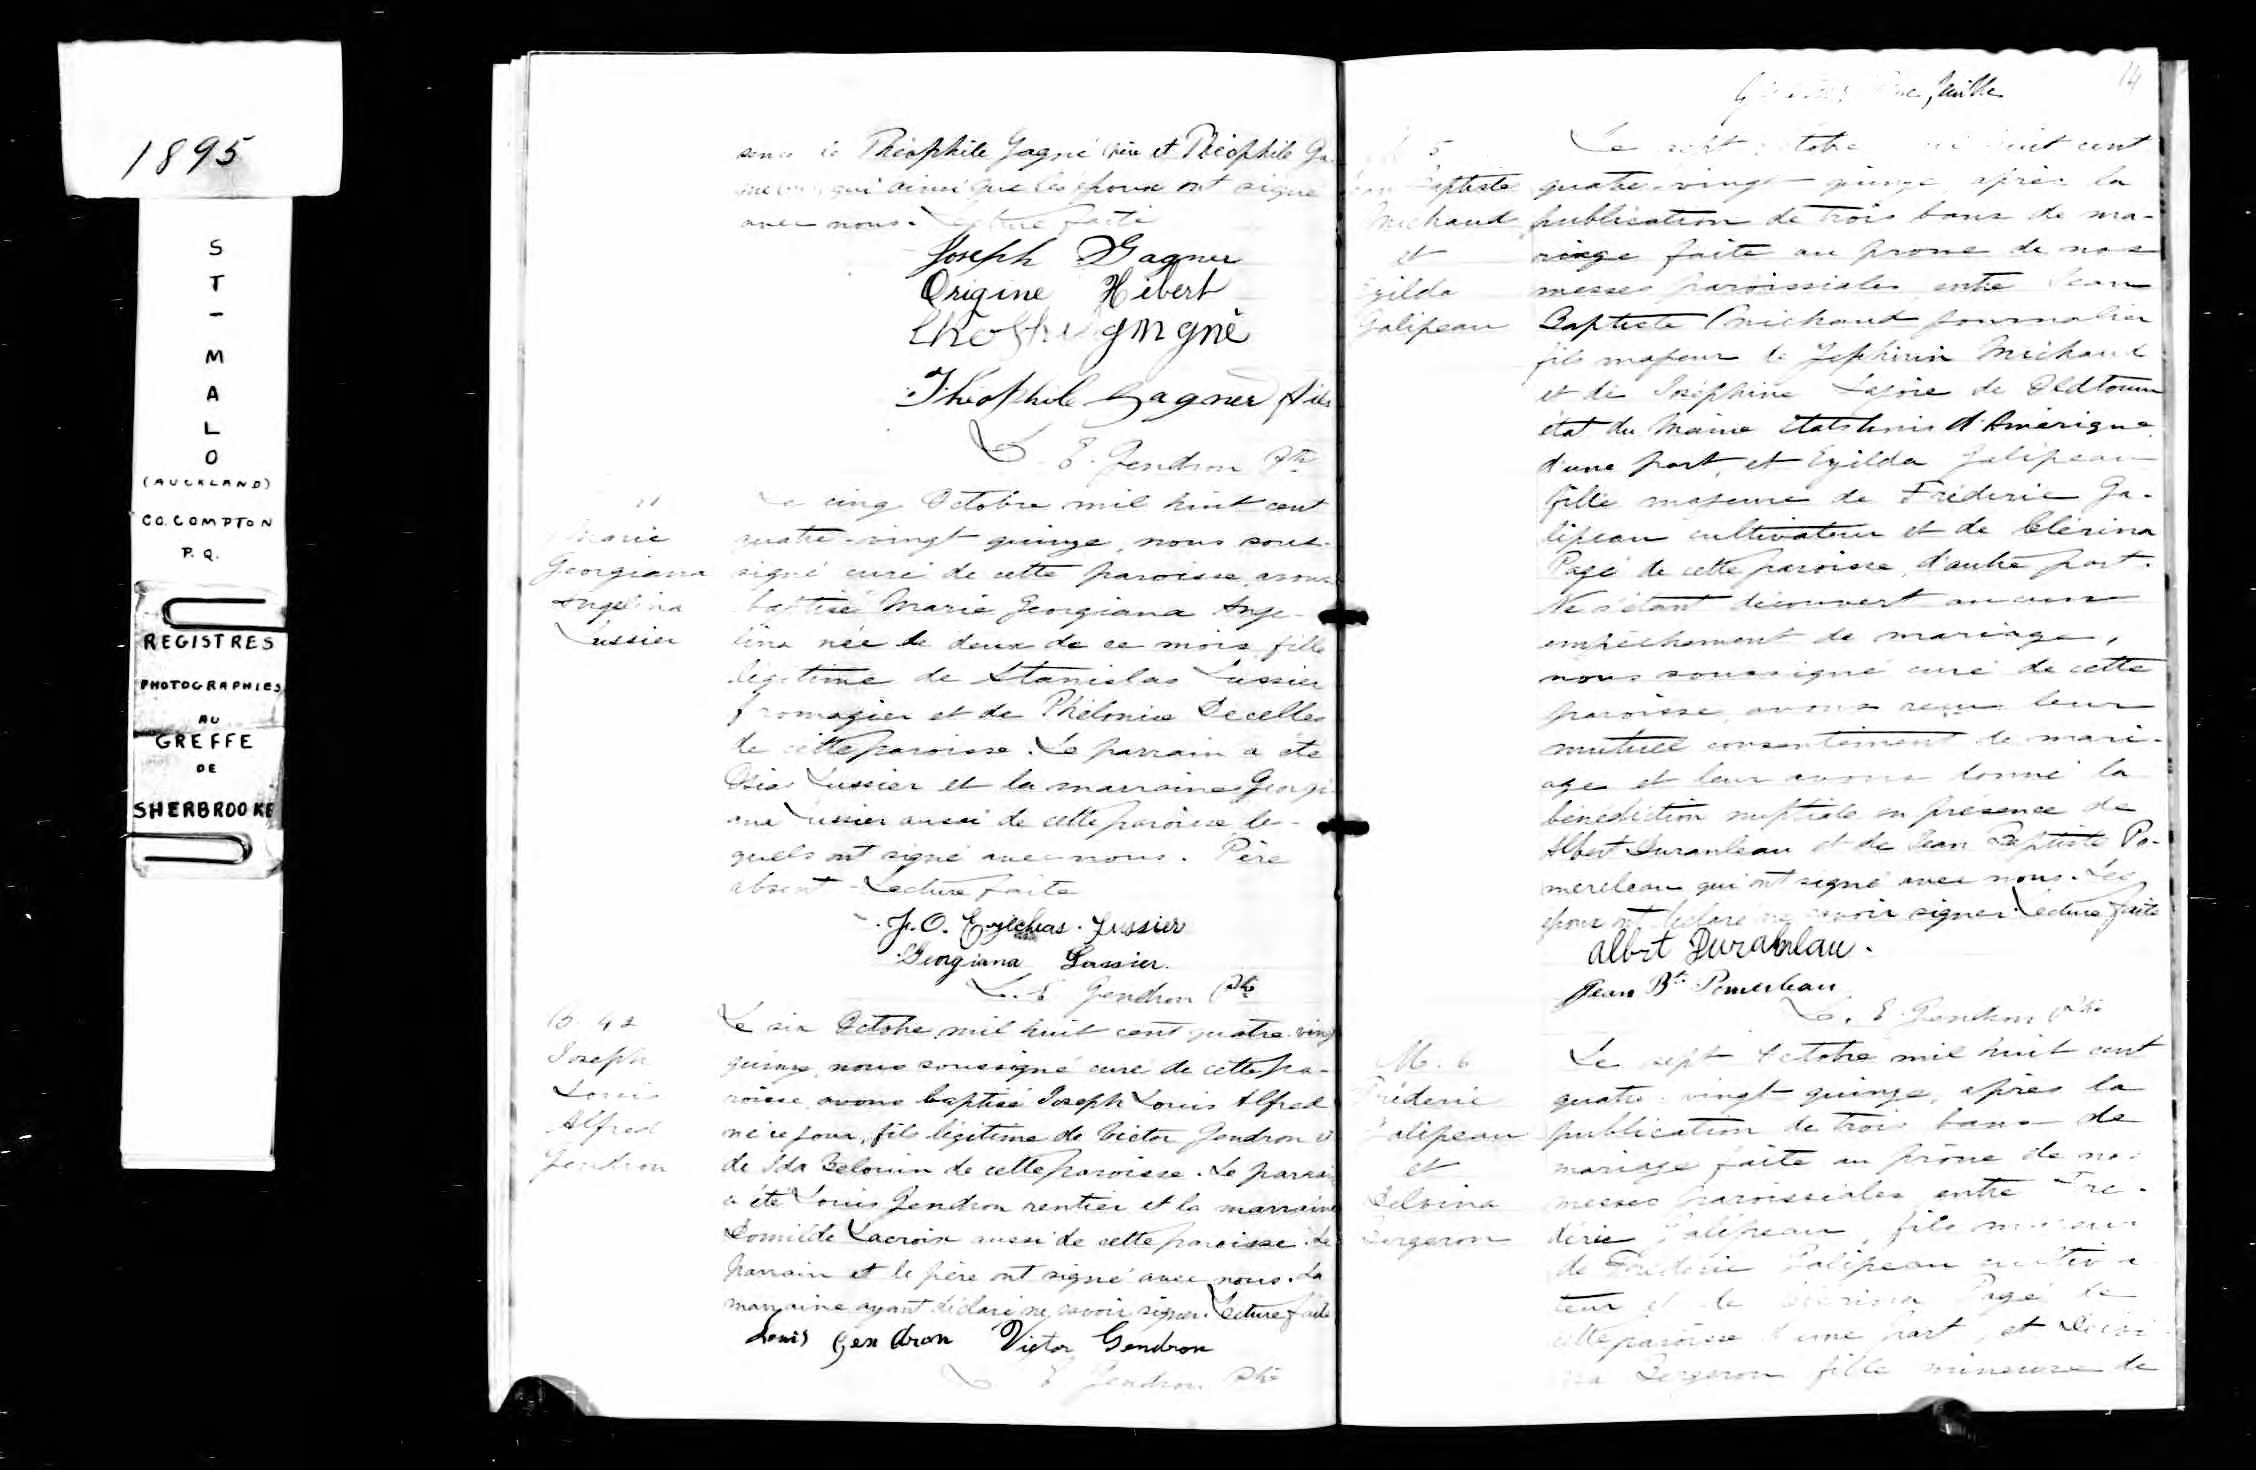 1895
S
T
-
M
A
L
O
(AUCKLAND)
CO. COMPTON
P. Q.
REGISTRES
PHOTOGRAPHIES
AU
GREFFE
DE
SHERBROOKE
Théophile Gagné père et Théophile Ga-
qui ainsi que les époux ont signé
avec nous. Lecture faite
Joseph Gagner
Origine Hébert
gagné
Théophile Gagner fils
L. E. Gendron Ptre
Marie
Georgiana
Angelina
Lussier
Le cinq Octobre mil huit cent
quatre-vingt quinze, nous sous-
signé curé de cette paroisse avons
baptisé Marie Georgiana Ange-
lina née le deux de ce mois fille
légitime de Stanislas Lussier
fromagier et de Philonise Decelles
de cette paroisse. Le parrain a été
Lussier et la marraine Georgi-
ana Lussier aussi de cette paroisse les-
quels ont signé avec nous. Père
absent - Lecture faite
J. O. Lussier
Georgiana Lussier.
L. E. Gendron Ptre
B. 42
Joseph
Louis
Alfred
Gendron
Le six Octobre mil huit cent quatre-vingt
quinze, nous soussigné curé de cette pa-
roisse avons baptisé Joseph Louis Alfred
né ce jour, fils légitime de Victor Gendron et
de Ida Belouin de cette paroisse. Le parrain
a été Louis Gendron rentier et la marraine
Domilde Lacroix aussi de cette paroisse. Le
parrain et le père ont signé avec nous. La
marraine ayant déclaré ne savoir signer. Lecture faite
Louis Gendron Victor Gendron
L. E. Gendron Ptre
14
feuille
5
Baptiste
Michaud
et
Egilda
Galipeau
Le sept octobre mil huit cent
quatre-vingt quinze, après la
publication de trois bans de ma-
riage faite au prone de nos
messes paroissiales entre Jean
Baptiste Michaud journalier
fils majeur de Zephirin Michaud
et de Joséphine Lajoie de Oldtown
état du Maine États Unis d'Amérique
d'une part, et Egilda Galipeau
fille majeure de Fréderic Ga-
lipeau cultivateur et de Clérina
Pagé de cette paroisse, d'autre part.
Ne s'étant découvert aucun
empêchement de mariage,
nous soussigné curé de cette
paroisse, avons reçu leur
mutuel consentement de mari-
age et leur avons donné la
bénédiction nuptiale en présence de
Albert Duranleau et de Jean Baptiste Po-
merleau qui ont signé avec nous. Les
époux ont déclaré ne savoir signer. Lecture faite
Albert Duranleau.
Jean Bte Pomerleau
L. E. Gendron Ptre
M. 6
Fréderic
Galipeau
et
Delvina
Bergeron
Le sept Octobre mil huit cent
quatre-vingt quinze, après la
publication de trois bans de
mariage faite au prône de nos
messes paroissiales entre Fré-
déric Galipeau, fils mineur
de Fréderic Galipeau cultiva-
teur et de Clérina Pagé de
cette paroisse d'une part, et Delvi-
na Bergeron fille mineure de